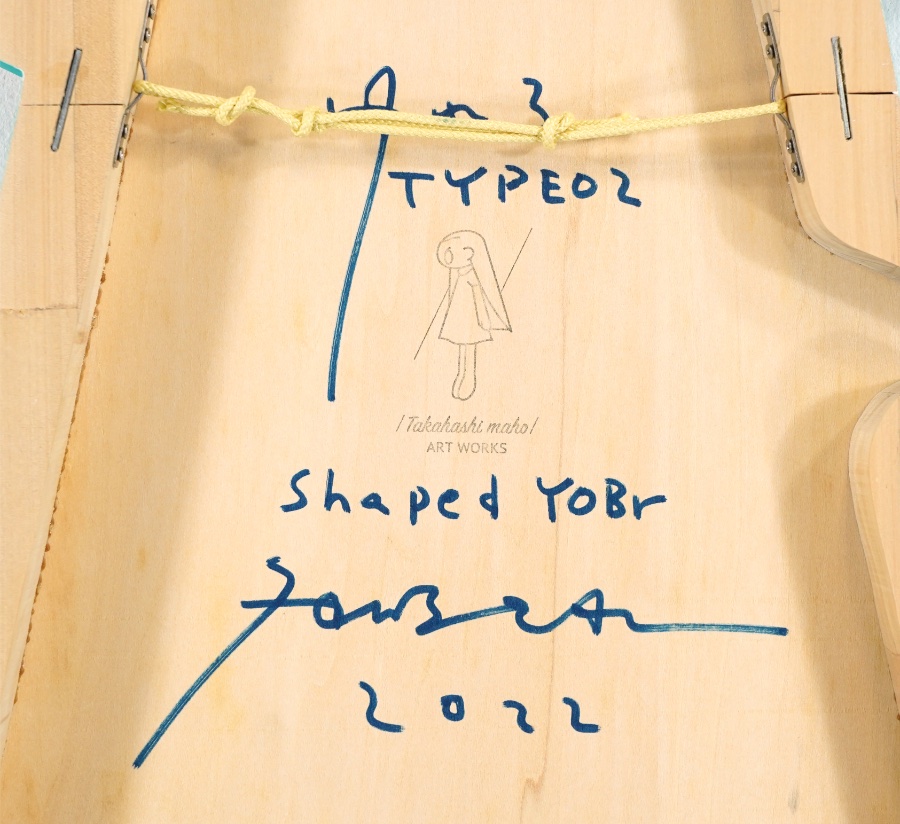 TYPE02
/Takahashi maho/
ART WORKS
Shaped YOBr
2022